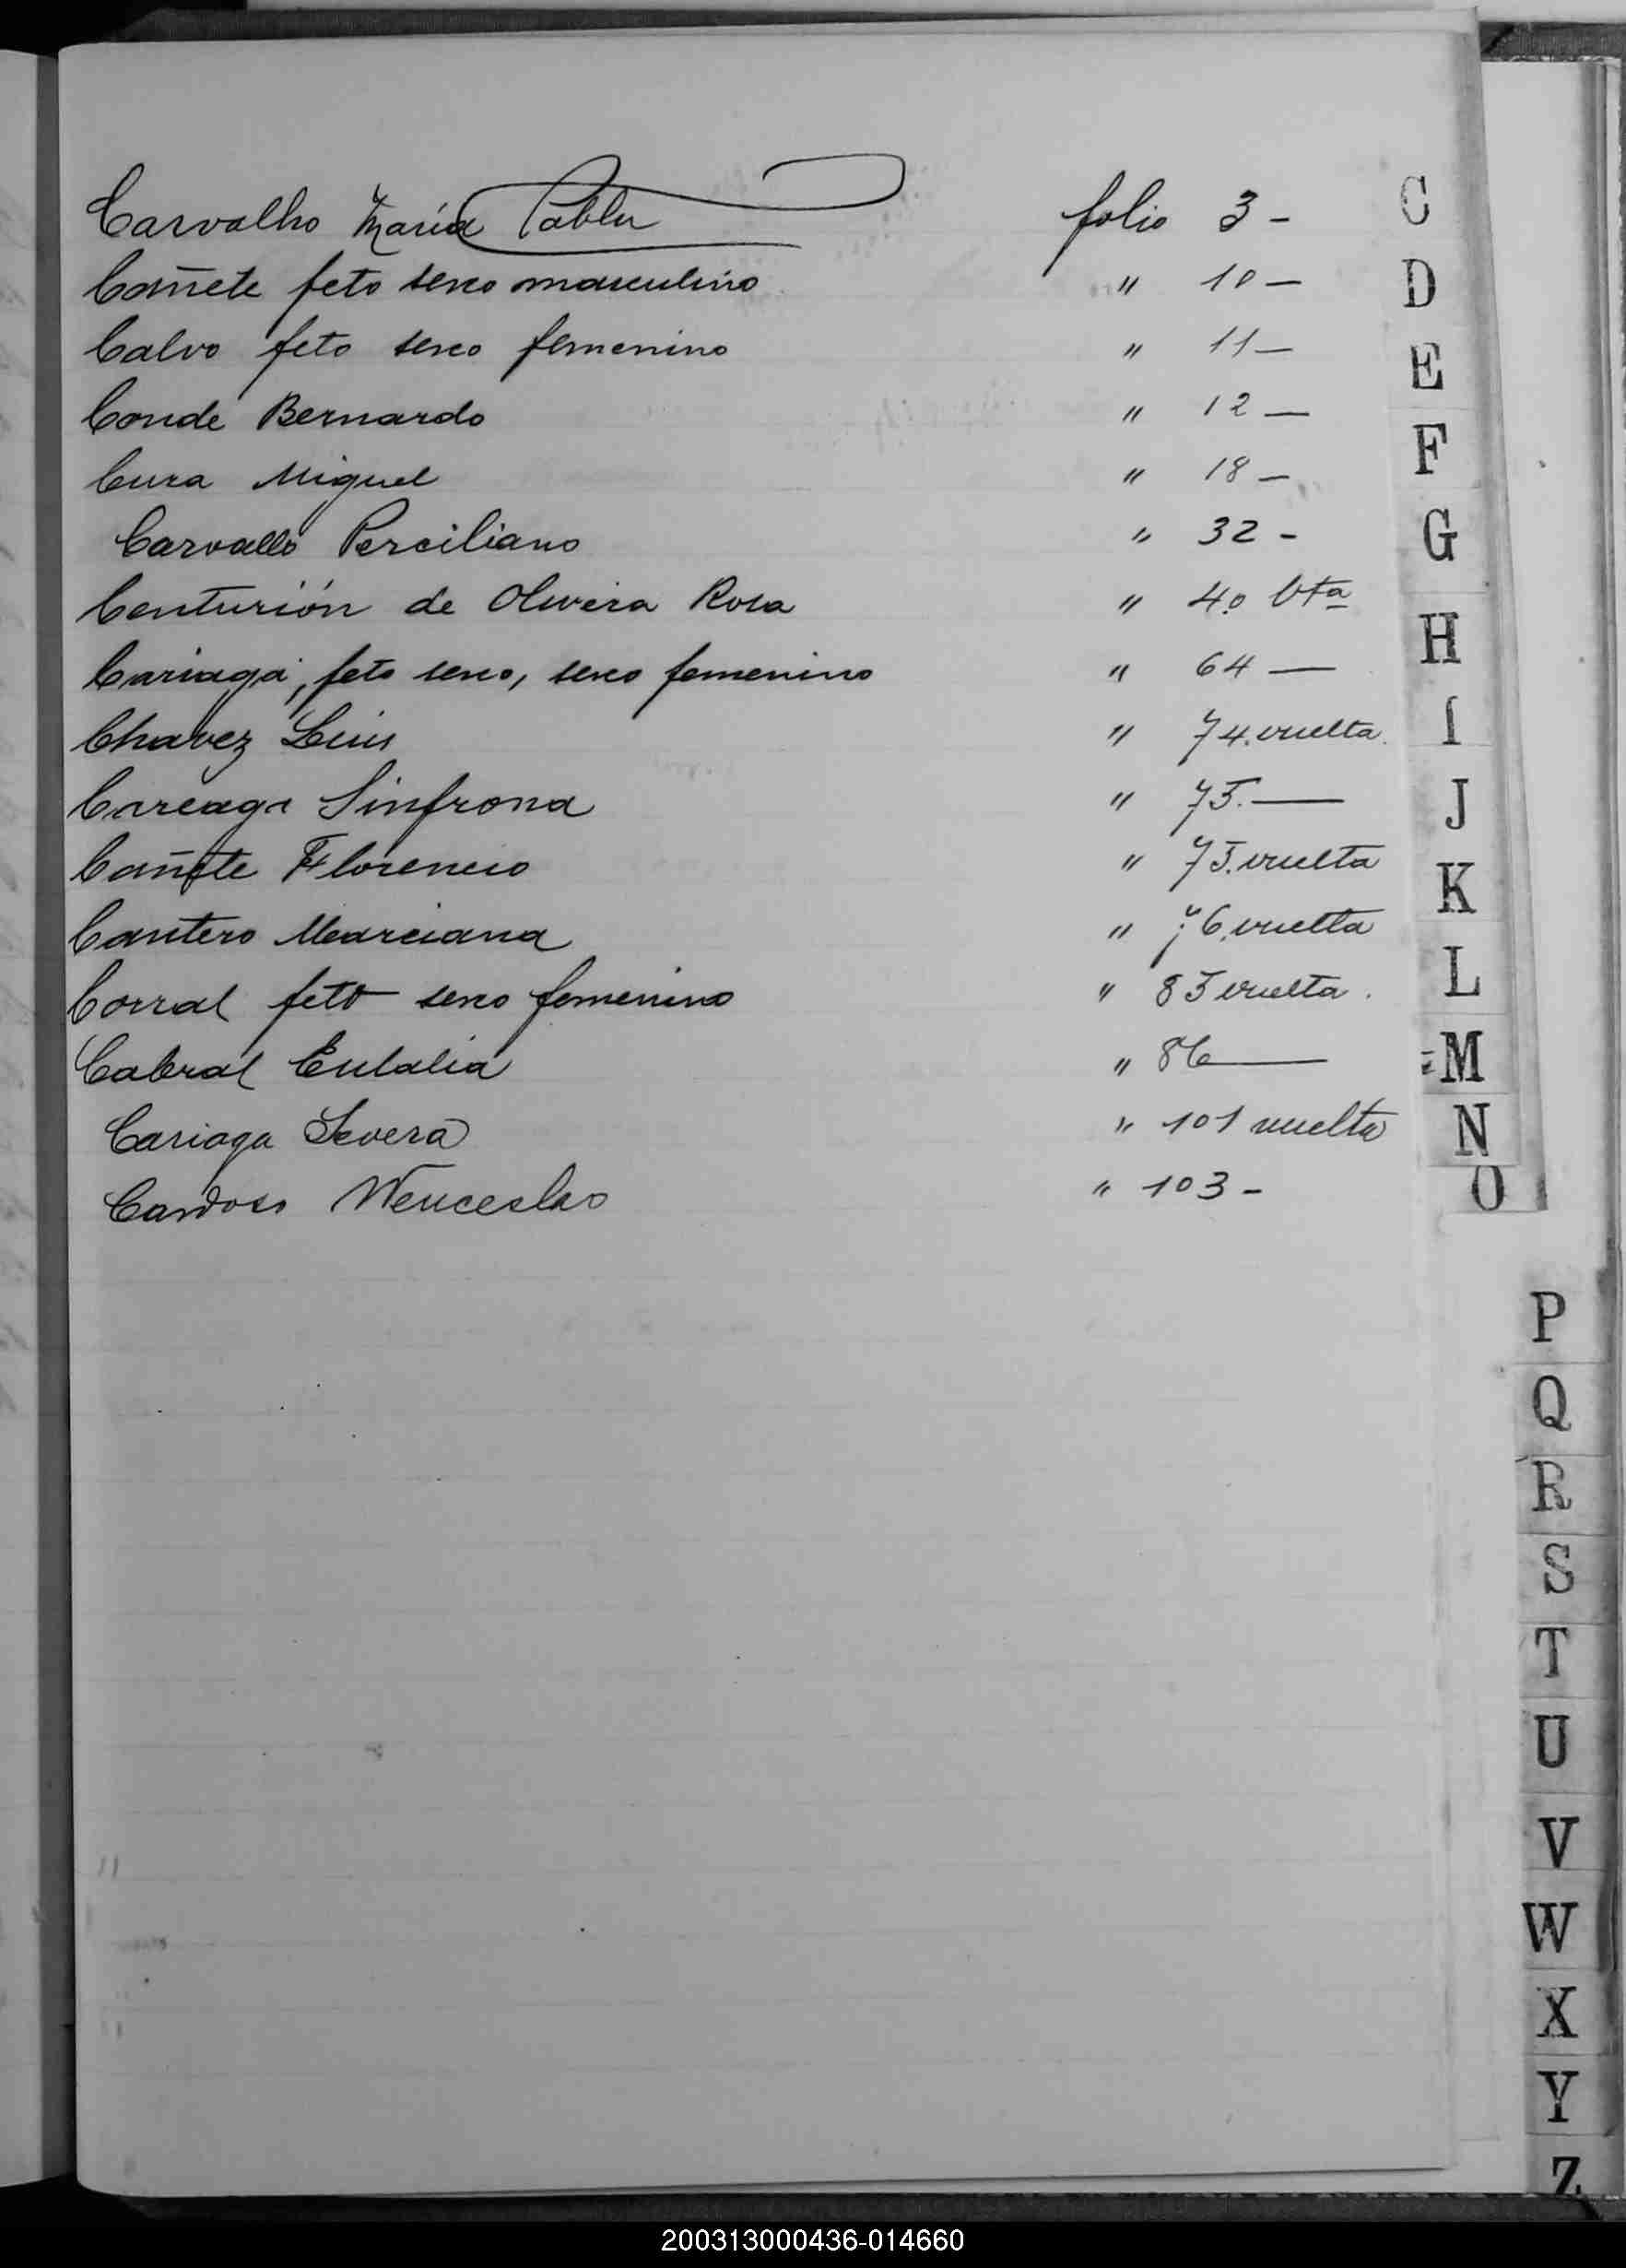 Carvalho María Pabla folio 3 - C
Cañete feto sexo masculino " 10 - D
Calvo feto sexo femenino " 11 - E
Conde Bernardo " 12 -
Cura Miguel " 18 - F
Carvallo Perciliano " 32 - G
Centurión de Olivera Rosa " 40 vta
Cariaga, feto sexo, sexo femenino " 64 - H
Chavez Luis " 74. vuelta I
Careaga Sinfrona " 75. - J
Cañete Florencio " 75. vuelta K
Cantero Marciana " 76. vuelta
Corral feto sexo femenino " 85 vuelta. L
Cabral Eulalia " 86 - M
Cariaga Severa " 101 vuelta N
Cardoso Wenceslao " 103 - O
P
Q
R
S
T
U
V
W
X
Y
Z
200313000436-014660